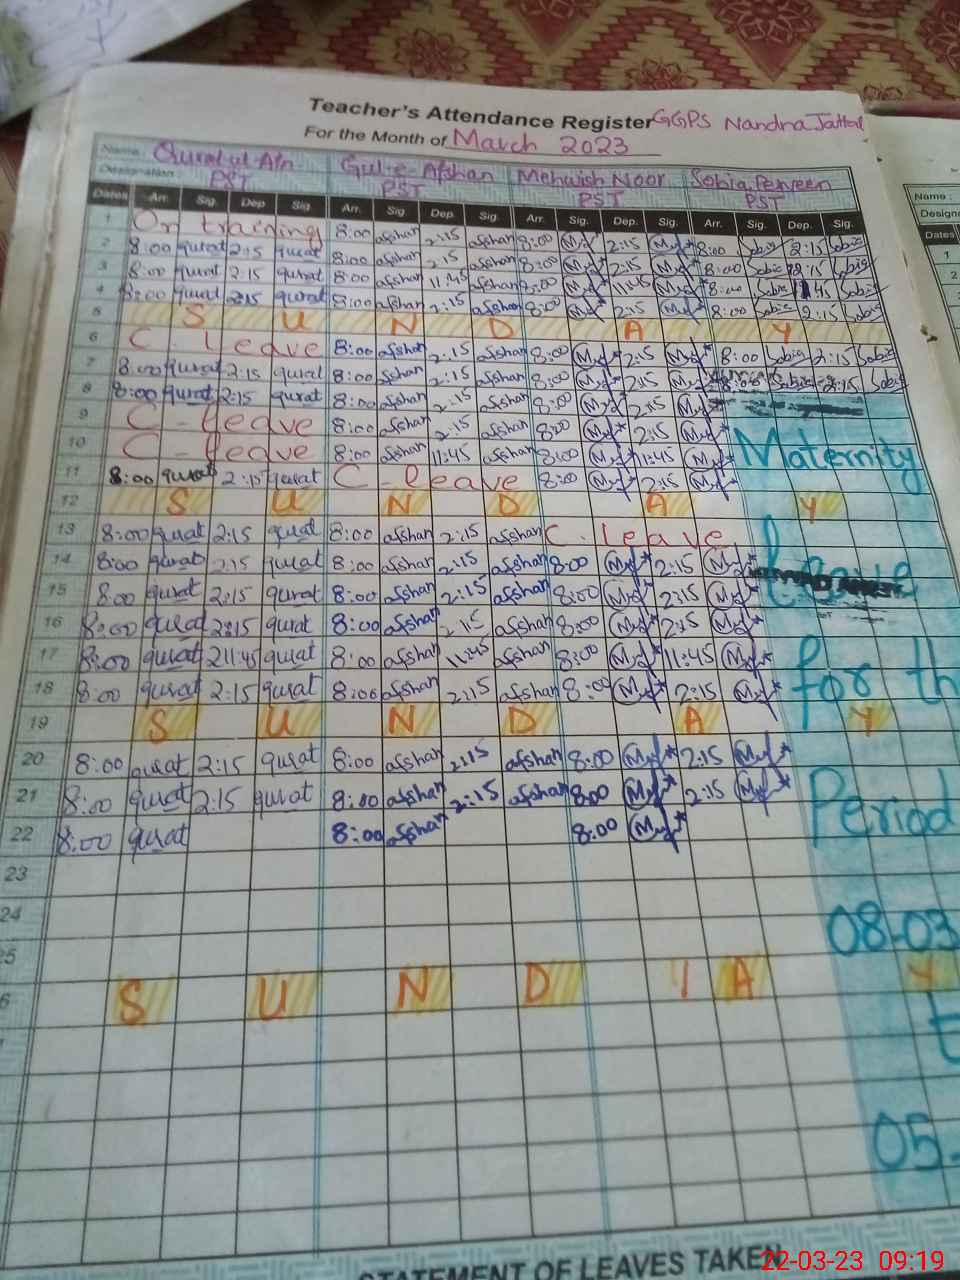 Teacher's Attendance Register GGPS Nandna Jattal
For the Month of March 2023
Name: Qurat ul Ain Gul-e-Afshan Mehwish Noor Sobia Perveen
Designation: PST PST PST PST
Dates Arr. Sig. Dep Sig. Arr. Sig. Dep. Sig. Arr. Sig. Dep. Sig. Arr. Sig. Dep. Sig.
1 On training 8:00 afshan 2:15 afshan 8:00 2:15 8:00 Sobia 2:15 Sobia
2 8:00 qurat 2:15 qurat 8:00 afshan 2:15 afshan 8:00 2:15 8:00 Sobia 2:15 Sobia
3 8:00 qurat 2:15 qurat 8:00 afshan 11:45 afshan 8:00 11:45 8:00 Sobia 11:45 Sobia
4 8:00 qurat 2:15 qurat 8:00 afshan 2:15 afshan 8:00 2:15 8:00 Sobia 2:15 Sobia
5 S U N D A Y
6 C. leave 8:00 afshan 2:15 afshan 8:00 2:15 8:00 Sobia 2:15 Sobia
7 8:00 qurat 2:15 qurat 8:00 afshan 2:15 afshan 8:00 2:15 8:00 Sobia 2:15 Sobia
8 8:00 qurat 2:15 qurat 8:00 afshan 2:15 afshan 8:00 2:15
9 C - leave 8:00 afshan 2:15 afshan 8:00 2:15
10 C - leave 8:00 afshan 11:45 afshan 8:00 11:45 Maternity
11 8:00 qurat 2:15 qurat C - leave 8:00 2:15
12 S U N D A Y
13 8:00 qurat 2:15 qurat 8:00 afshan 2:15 afshan C. leave
14 8:00 qurat 2:15 qurat 8:00 afshan 2:15 afshan 8:00 2:15 leave
15 8:00 qurat 2:15 qurat 8:00 afshan 2:15 afshan 8:00 2:15
16 8:00 qurat 2:15 qurat 8:00 afshan 2:15 afshan 8:00 2:15
17 8:00 qurat 11:45 qurat 8:00 afshan 11:45 afshan 8:00 11:45 for th
18 8:00 qurat 2:15 qurat 8:00 afshan 2:15 afshan 8:00 2:15
19 S U N D A Y
20 8:00 qurat 2:15 qurat 8:00 afshan 2:15 afshan 8:00 2:15
21 8:00 qurat 2:15 qurat 8:00 afshan 2:15 afshan 8:00 2:15 Period
22 8:00 qurat 8:00 afshan 8:00
23
24 08-03
25
6 S U N D A Y
t
05-
STATEMENT OF LEAVES TAKEN
Name:
Design
Dates
1
2
22-03-23 09:19